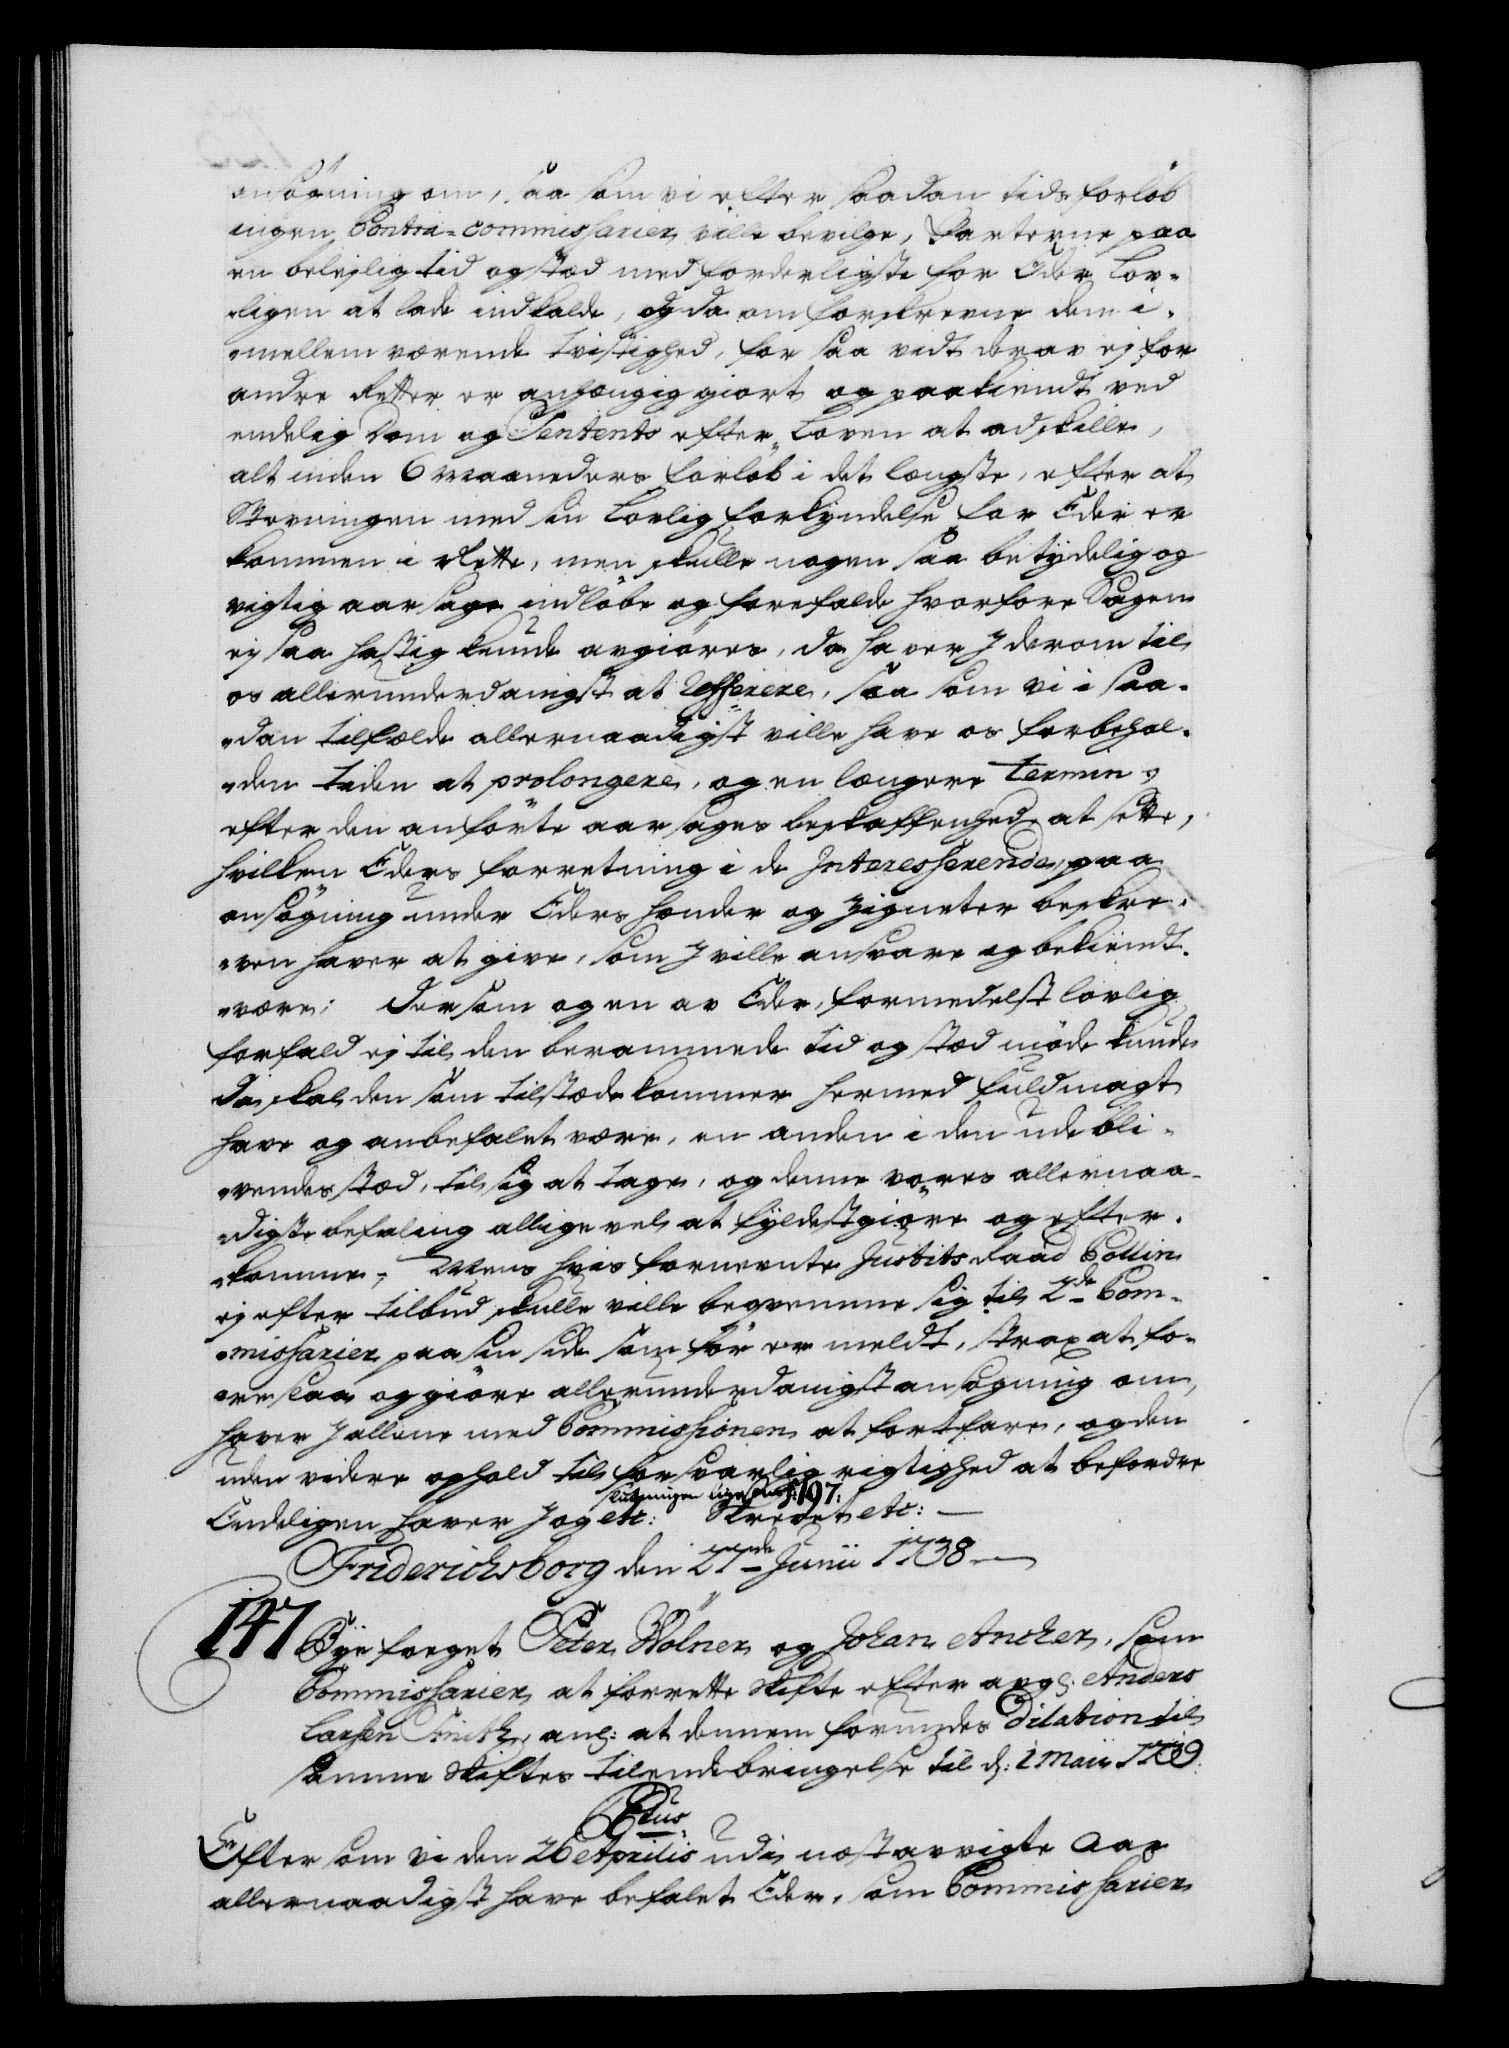 ansøgning om, saa som vi efter saadan tids forløb
ingen Contra-commissarier ville bevilge, Parterne paa
en belejlig tid og stæd med forderligste for Eder Lov-
ligen at lade indkalde, og da om forskrevne dem i-
mellem værende tvistighed, for saa vidt derav ej for
andre Retter er anhængig giort og paakiendt ved
endelig Dom og Sentents efter Loven at adskille,
alt inden 6 Maaneders forløb i det længste, efter at
Stevningen med sin Lovlig forkyndelse for Eder er
kommen i Rette, men skulle nogen saa betydelig og
vigtig aarsage indløbe og forefalde hvorfore Sagen
ej saa hastig kunde avgiøres, da haver J derom til
os allerunderdanigst at Refferere, saa som vi i saa-
dan tilfælde allernaadigst ville have os forbehol-
den tiden at prolongere, og en længere Termin
efter den anførte aarsages beskaffenhed at sætte,
hvilken Eders forretning i de Interesserende paa
ansøgning under Eders hænder og Zigneter beskre-
ven haver at give, som J ville ansvare og bekiendt
være; Dersom og en av Eder, formedelst lovlig
forfald ej til den berammede tid og stæd møde kunde
da skal den som tilstæde kommer hermed fuldmagt
have og anbefalet være, en anden i den udebli-
vendes stæd, til sig at tage, og denne vores allernaa-
digste befaling alligevel at fyldestgiøre og efter-
komme; Mens hvis fornevnte Justits Raad Collin
ej efter tilbud skulle ville beqvemme sig til 2de Com-
missarier paa sin side som før er meldt, strax at fo-
reslaa og giøre allerunderdanigst ansøgning om,
haver J allene med Commissionen at fortfare, og den
uden videre ophold til forsvarlig rigtighed at befordre
slutningen lige som f: 197:
Endeligen haver J og etc: Skrevet etc:
Friderichsborg den 27de Junii 1738
147 Bye foget Peter Wølner og Johan Ancher, som
Commissarier at forrette Skifte efter avg: Anders
Larsen Smith, ang: at dennem forundes Dilation til
samme Skiftes tilendebringelse til d: 1 Maii 1739.
C 6tus
Eftersom vi den 26 Aprilis udi næstavvigte Aar
allernaadigst have befalet Eder, som Commissarier